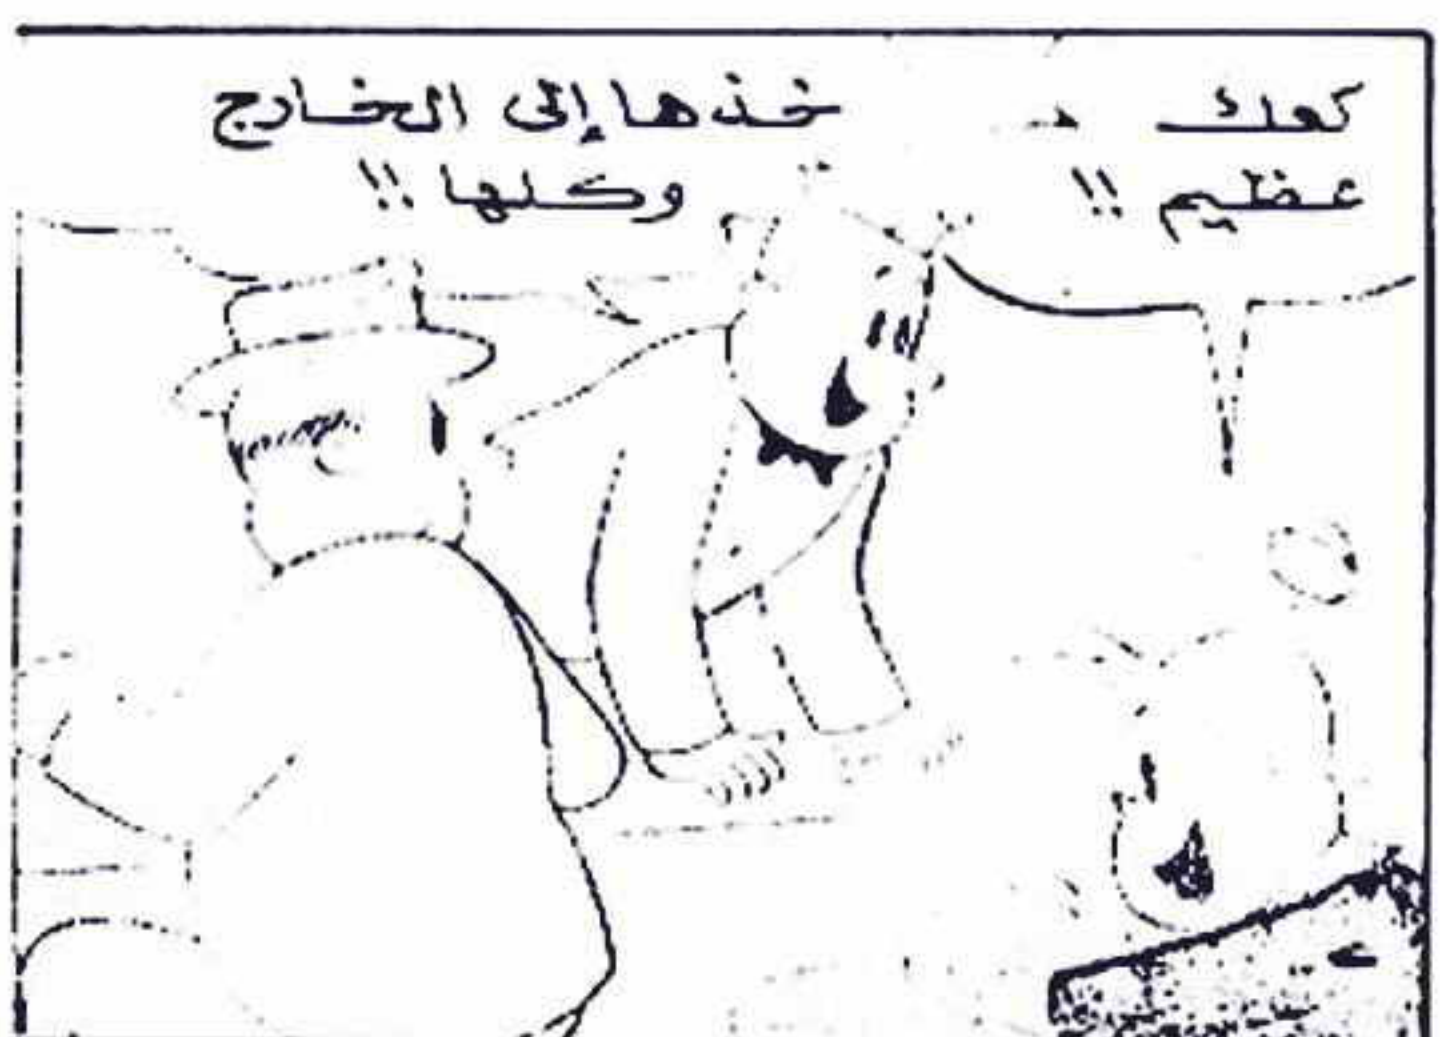 كعك
عظيم !!
خذها إلى الخارج
وكلها !!